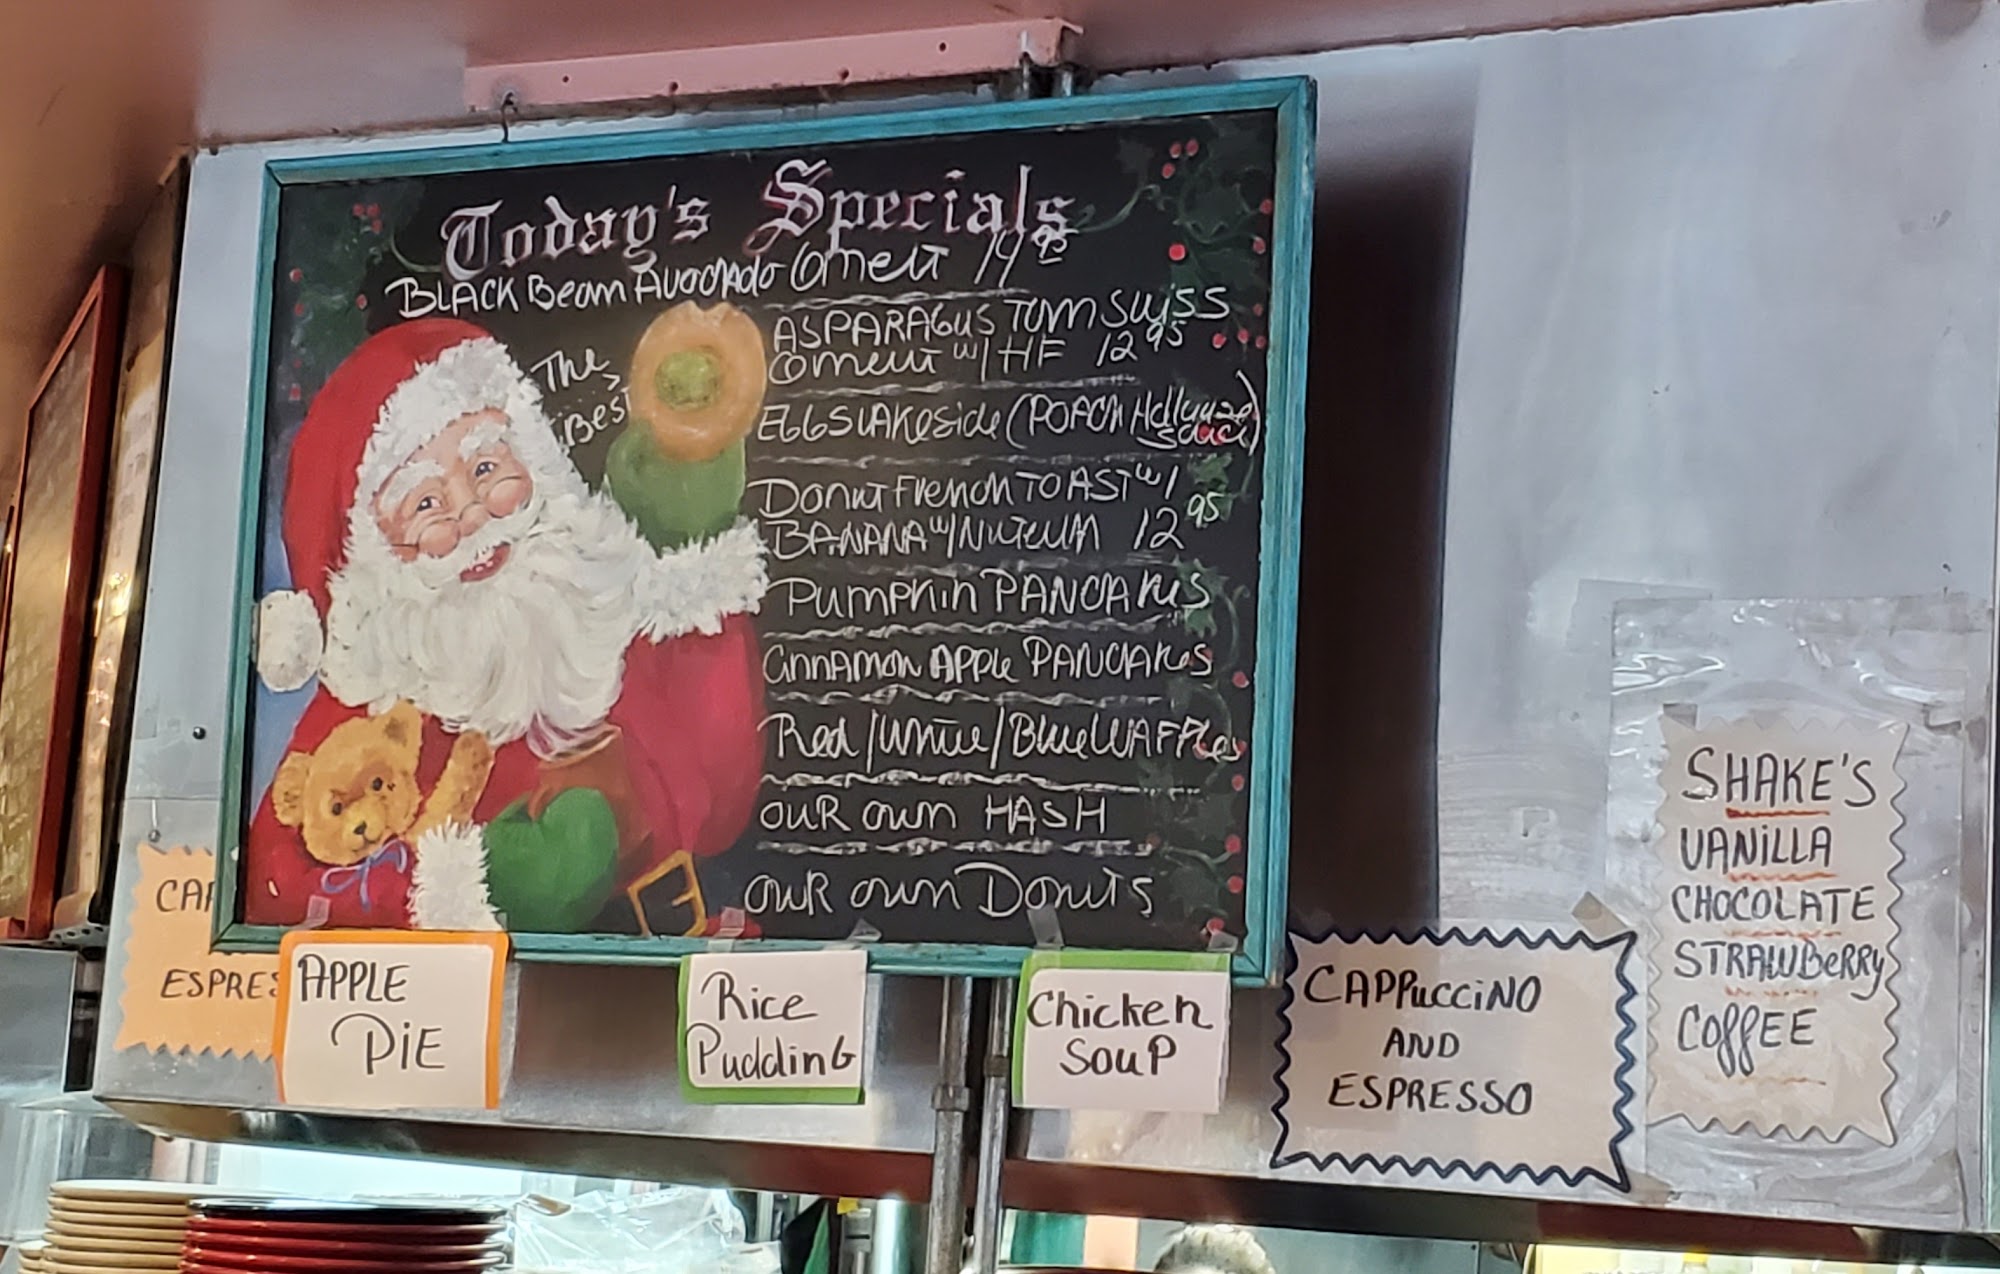 Today's Specials
BLACK Bean Avocado Omelt 14 95
The
Best
ASPARAGUS TOM SWISS
Omelt w/ HF 12 95
EGGS LAKESide (POACH Hollandze
Sauce)
Donut French TOAST w/
BANANA w/ Nutella 12 95
Pumpkin PANCAKES
Cinnamon APPle PANCAKes
Red/White/Blue WAFFles
OUR OWN HASH
OUR OWN Donuts
CAP
ESPRES
APPLE
PiE
Rice
PuddinG
Chicken
SouP
CAPPucciNO
AND
ESPRESSO
SHAKE'S
VANiLLA
CHOCOLATE
STRAWBeRRy
COffEE